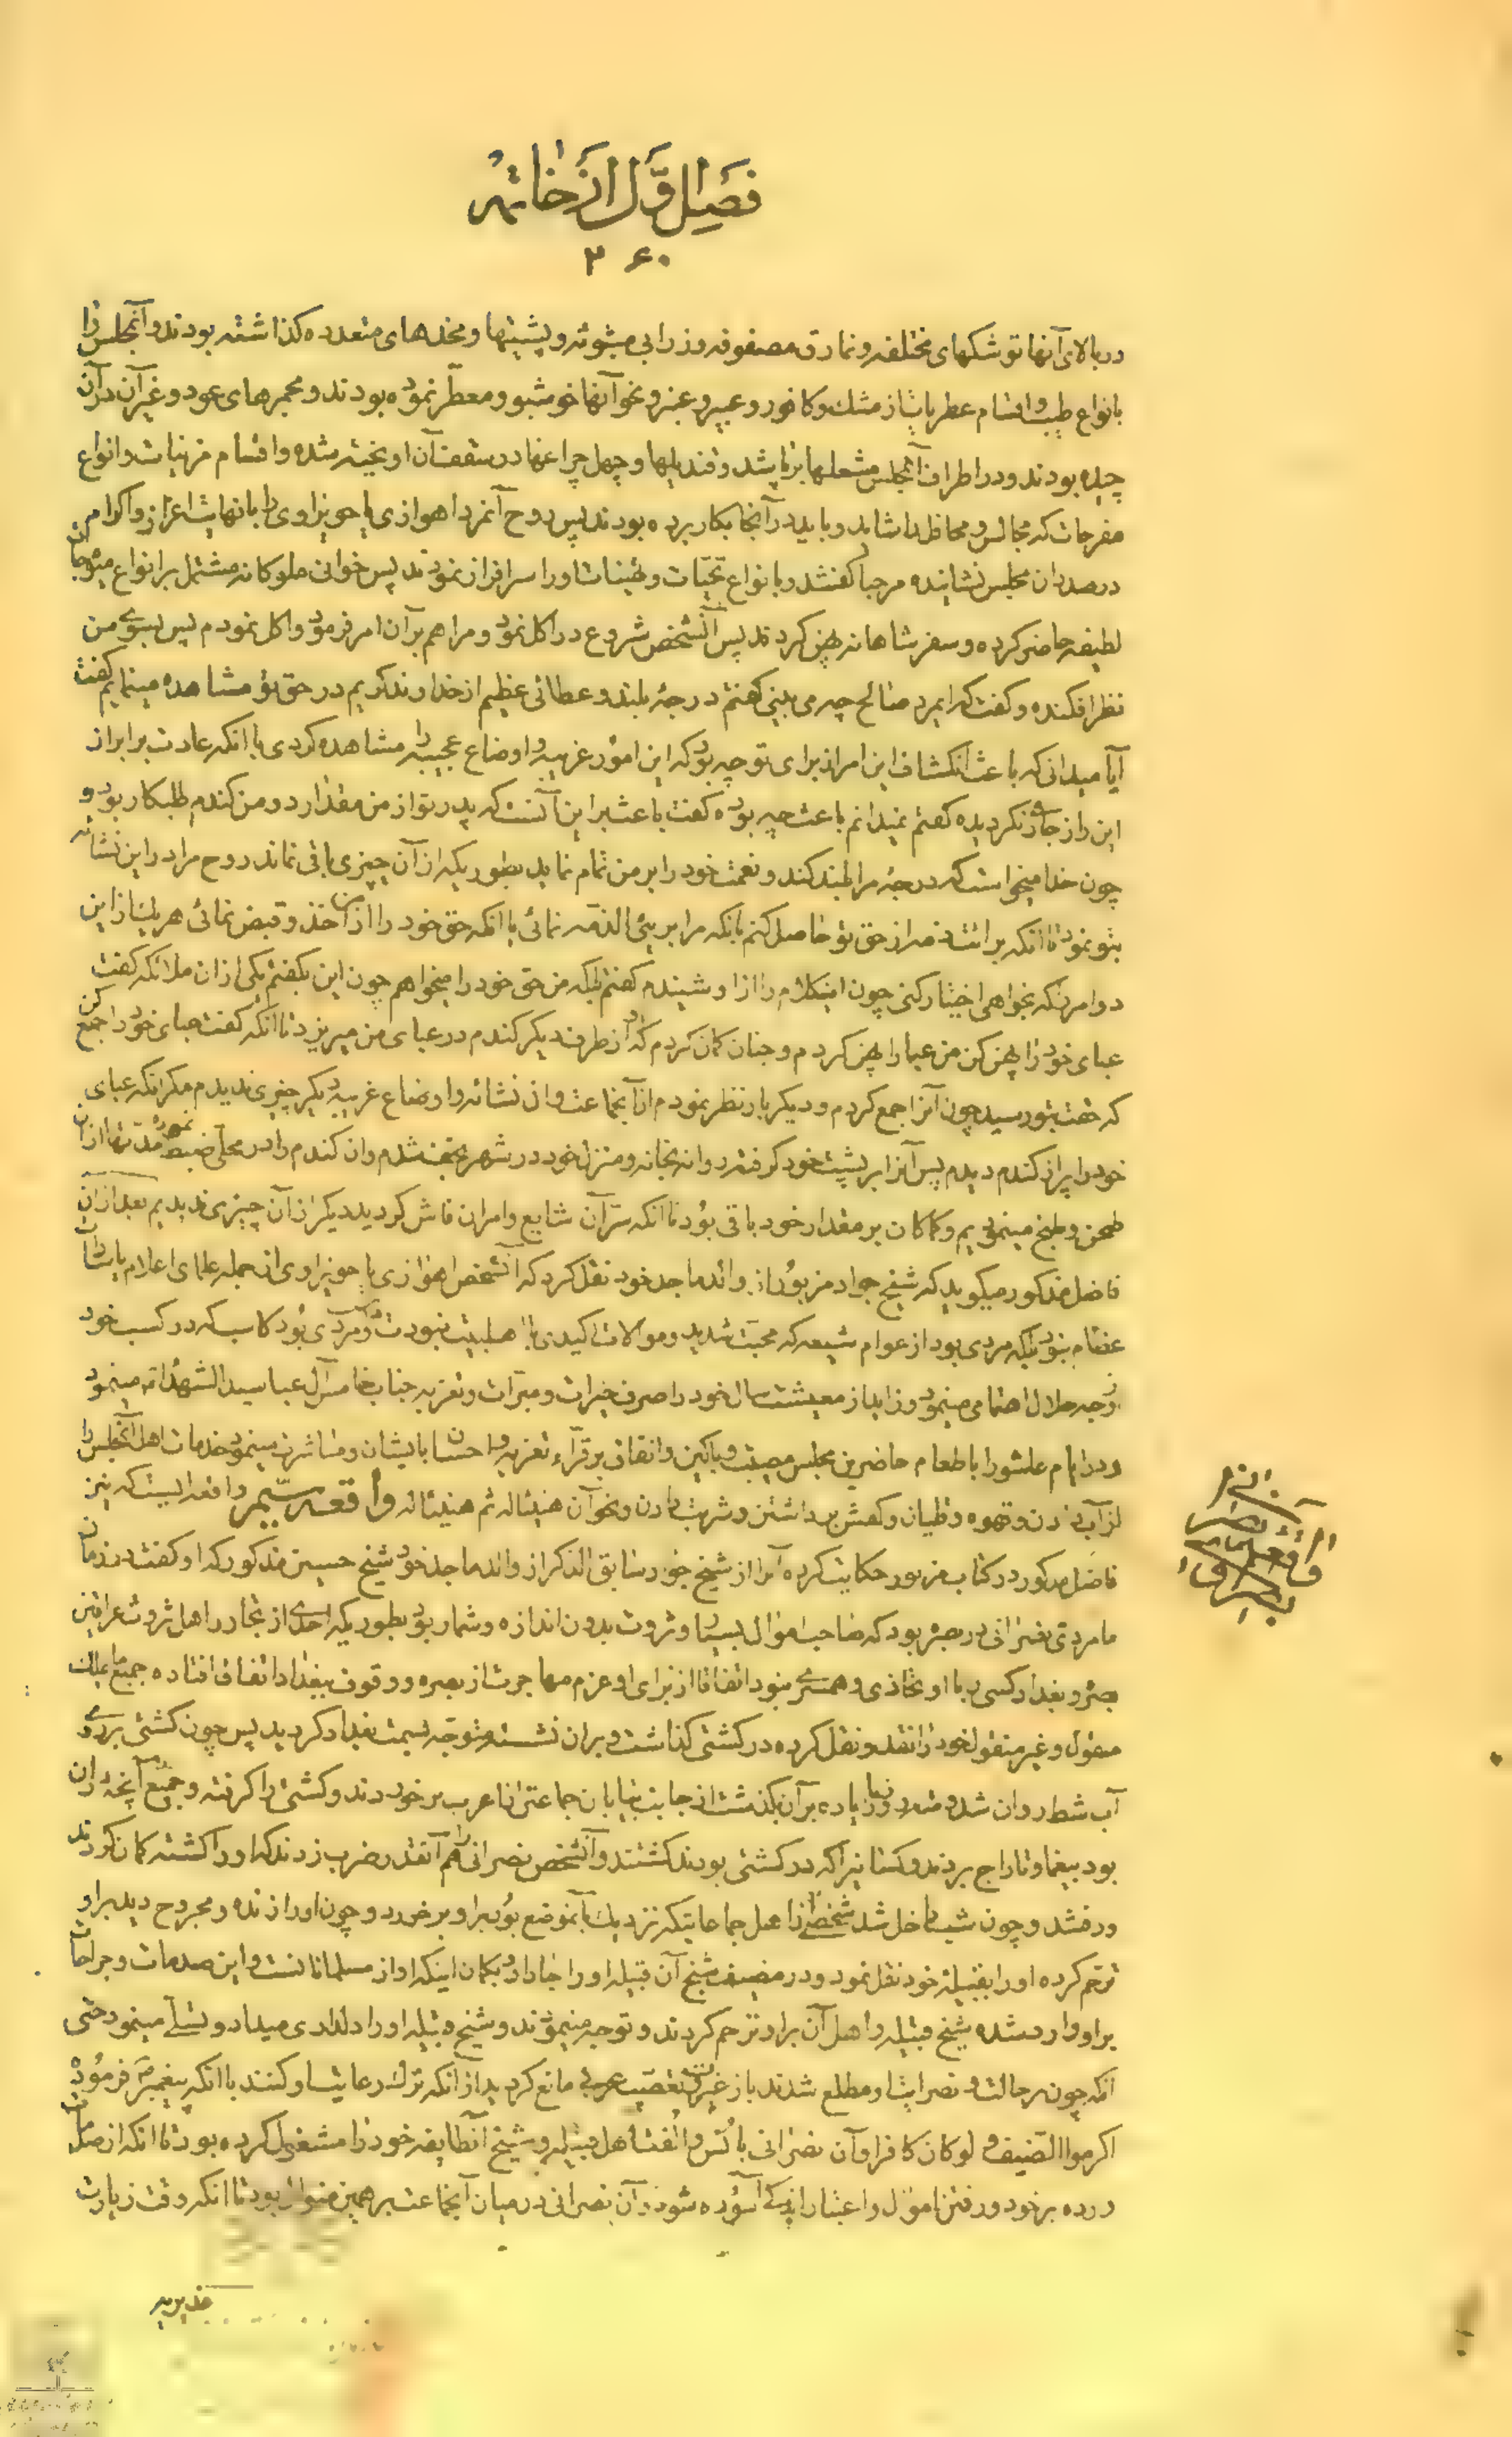 فصل اوّل از خاتمه
۳۶۰
در بالای آنها توشکهای مختلفه و نمارق مصفوفه و زرابی مبثوثه و پشتیها و مخده‌های متعدده گذاشته بودند و آن مجلس را
بانواع طیب و اقسام عطریات از مشک و کافور و عبیر و عنبر و نحو آنها خوشبو و معطّر نموده بودند و مجمرهای عود و غیر آن در آن
چیده بودند و در اطراف آن مجلس مشعلها برپا شد و قندیلها و چهل چراغها در سقف آن آویخته شده و اقسام مزینات و انواع
مفرحات که مجالس و محافل را شاید و باید در آنجا بکار برده بودند پس روح آنمرد اهوازی یا حویزاوی را با نهایت اعزاز و اکرام
در صدر آن مجلس نشانیده مرحبا گفتند و بانواع تحیّات و تهنیات او را سرافراز نمودند پس خوانی ملوکانه مشتمل بر انواع
لطیفه حاضر کرده و سفر شاهانه پهن کردند پس آنشخص شروع در اکل نمود و مرا هم بر آن امر فرمود و اکل نمودم پس بسوی من
نظر افکنده و گفت که ایمرد صالح چه می بینی گفتم درجهٔ بلند و عطائی عظیم از خداوند کریم در حق تو مشاهده مینمایم گفت
آیا میدانی که باعث انکشاف این امر از برای تو چه بود که این امور غریبه و اوضاع عجیبه را مشاهده کردی با آنکه عادت بر ابراز
این راز جاری نگردیده گفتم نمیدانم باعث چه بوده گفت باعث بر این آنست که پدر تو از من مقدار دو من گندم طلبکار بود و
چون خدا میخواست که درجهٔ مرا بلند کند و نعمت خود را بر من تمام نماید بطوریکه از آن چیزی باقی نماند روح مرا در این نشأه
بتو نمود تا آنکه برائت ذمه از حق تو حاصل کنم بانکه مرا بریئی الذمّه نمائی یا آنکه حق خود را از من اخذ و قبض نمائی هر یک از این
دو امر را که بخواهی اختیار کنی چون اینکلام را از او شنیدم گفتم بلکه من حق خود را میخواهم چون این بگفتم یکی از آن ملائکه گفت
عبای خود را پهن کن من عبا را پهن کردم و چنان گمان کردم که او از طرف دیگر گندم در عبای من میریزد تا آنکه گفت عبای خود را جمع کن
که حقت بتو رسید چون آنرا جمع کردم و دیگر بار نظر نمودم از آنجماعت و از آن نشأه و اوضاع غریبه دیگر چیزی ندیدم مگر آنکه عبای
خود را پر از گندم دیدم پس آنرا بر پشت خود گرفته روانه بخانه و منزل خود در شهر نجف شدم و آن گندم را در محلّی ضبط نموده مدّتها از آن
طحن و طبخ مینمودیم و کماکان بر مقدار خود باقی بود تا آنکه سرّ آن شایع و امر آن فاش گردید دیگر از آن چیزی ندیدیم بعد از آن
فاضل مذکور میگوید که شیخ جواد مزبور از والد ماجد خود نقل کرد که آنشخص اهوازی یا حویزاوی از جمله علمای اعلام یا سادات
عظام نبود بلکه مردی بود از عوام شیعه که محبّت شدید و موالات اکیدی با اهلبیت نبوت داشت و مردی بود کاسب که در کسب خود
بوجه حلال اهتمامی مینمود و زاید از معیشت سال خود را صرف خیرات و مبرّات و تعزیه جناب خامس آل عبا سید الشهداء مینمود
و در ایام عاشورا باطعام حاضرین مجلس مصیبت و باکین و انفاق بر قرّاء تعزیه و احسان بایشان و مباشرت مینمود خدمات اهل آن مجلس را
از آب دادن و قهوه و قلیان و کفش برداشتن و شربت دادن و نحو آن هنیئاله ثم هنیئاله واقعه سیّم واقعه ایست که نیز
فاضل مذکور در کتاب مزبور حکایت کرده آنرا از شیخ جواد سابق الذکر از والد ماجد خود شیخ حسین مذکور که او گفت در زمان
ما مردی نصرانی در بصره بود که صاحب اموال بسیار و ثروت بدون اندازه و شمار بود بطوریکه احدی از تجار و اهل ثروت عراقین
بصره و بغداد کسی با او محاذی و همسری ننمود اتفاقا از برای او عزم مهاجرت از بصره و وقوف ببغداد اتفاق افتاده جمیع مایملک
منقول و غیر منقول خود را نقد و نقل کرده در کشتی گذاشت و بر آن نشسته متوجّه بسمت بغداد گردید پس چون کشتی بر روی
آب شط روان شد و روزها یا زیاده بر آن بگذشت از جانب بیابان جماعتی از اعراب بر خوردند و کشتی را گرفته و جمیع آنچه در آن
بود بیغما و تاراج بردند و کسانیرا که در کشتی بودند کشتند و آنشخص نصرانی را هم آنقدر ضرب زدند که او را کشته گمان کردند
و رفتند و چون شب داخل شد شخصی از اهل جماعاتیکه نزدیک بآنموضع بود بر او بر خورد و چون او را زنده و مجروح دید بر او
ترحّم کرده او را بقبیلهٔ خود نقل نمود و در مضیف شیخ آن قبیله او را جا داد و بگمان اینکه او از مسلمانانست و این صدمات و جراحات
بر او وارد شده شیخ قبیله و اهل آن بر او ترحم کردند و توجه مینمودند و شیخ قبیله او را دلداری میداد و تسلّی مینمود حتی
آنکه چون بر حالت و نصرانیت او مطلع شدند باز غیرت و تعصّب عربی مانع گردید از آنکه ترک رعایت او کنند با آنکه پیغمبر ص فرموده
اکرموا الضیف و لو کان کافرا و آن نصرانی با انس و الفت اهل قبیله و شیخ آنطایفه خود را مشغول کرده بود تا آنکه از صدمات
وارده بر خود و رفتن اموال و اعتبار اندکی آسوده شود و آن نصرانی در میان آنجماعت بر همین منوال بود تا آنکه وقت زیارت
غدیریه